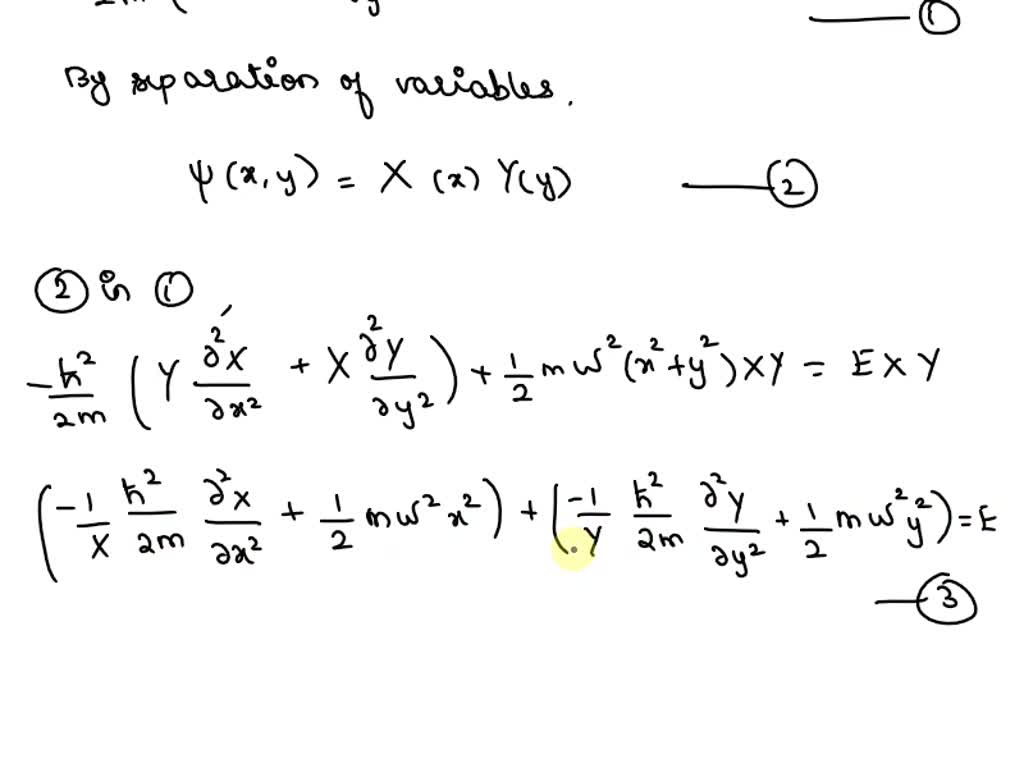 2m ( y ——①
By separation of variables.
ψ(x,y) = X(x) Y(y) ——②
② in ①
-ℏ²/2m (Y ∂²X/∂x² + X ∂²Y/∂y²) + 1/2 mω²(x²+y²)XY = EXY
(-1/X ℏ²/2m ∂²X/∂x² + 1/2 mω²x²) + (-1/Y ℏ²/2m ∂²Y/∂y² + 1/2 mω²y²) = E
——③